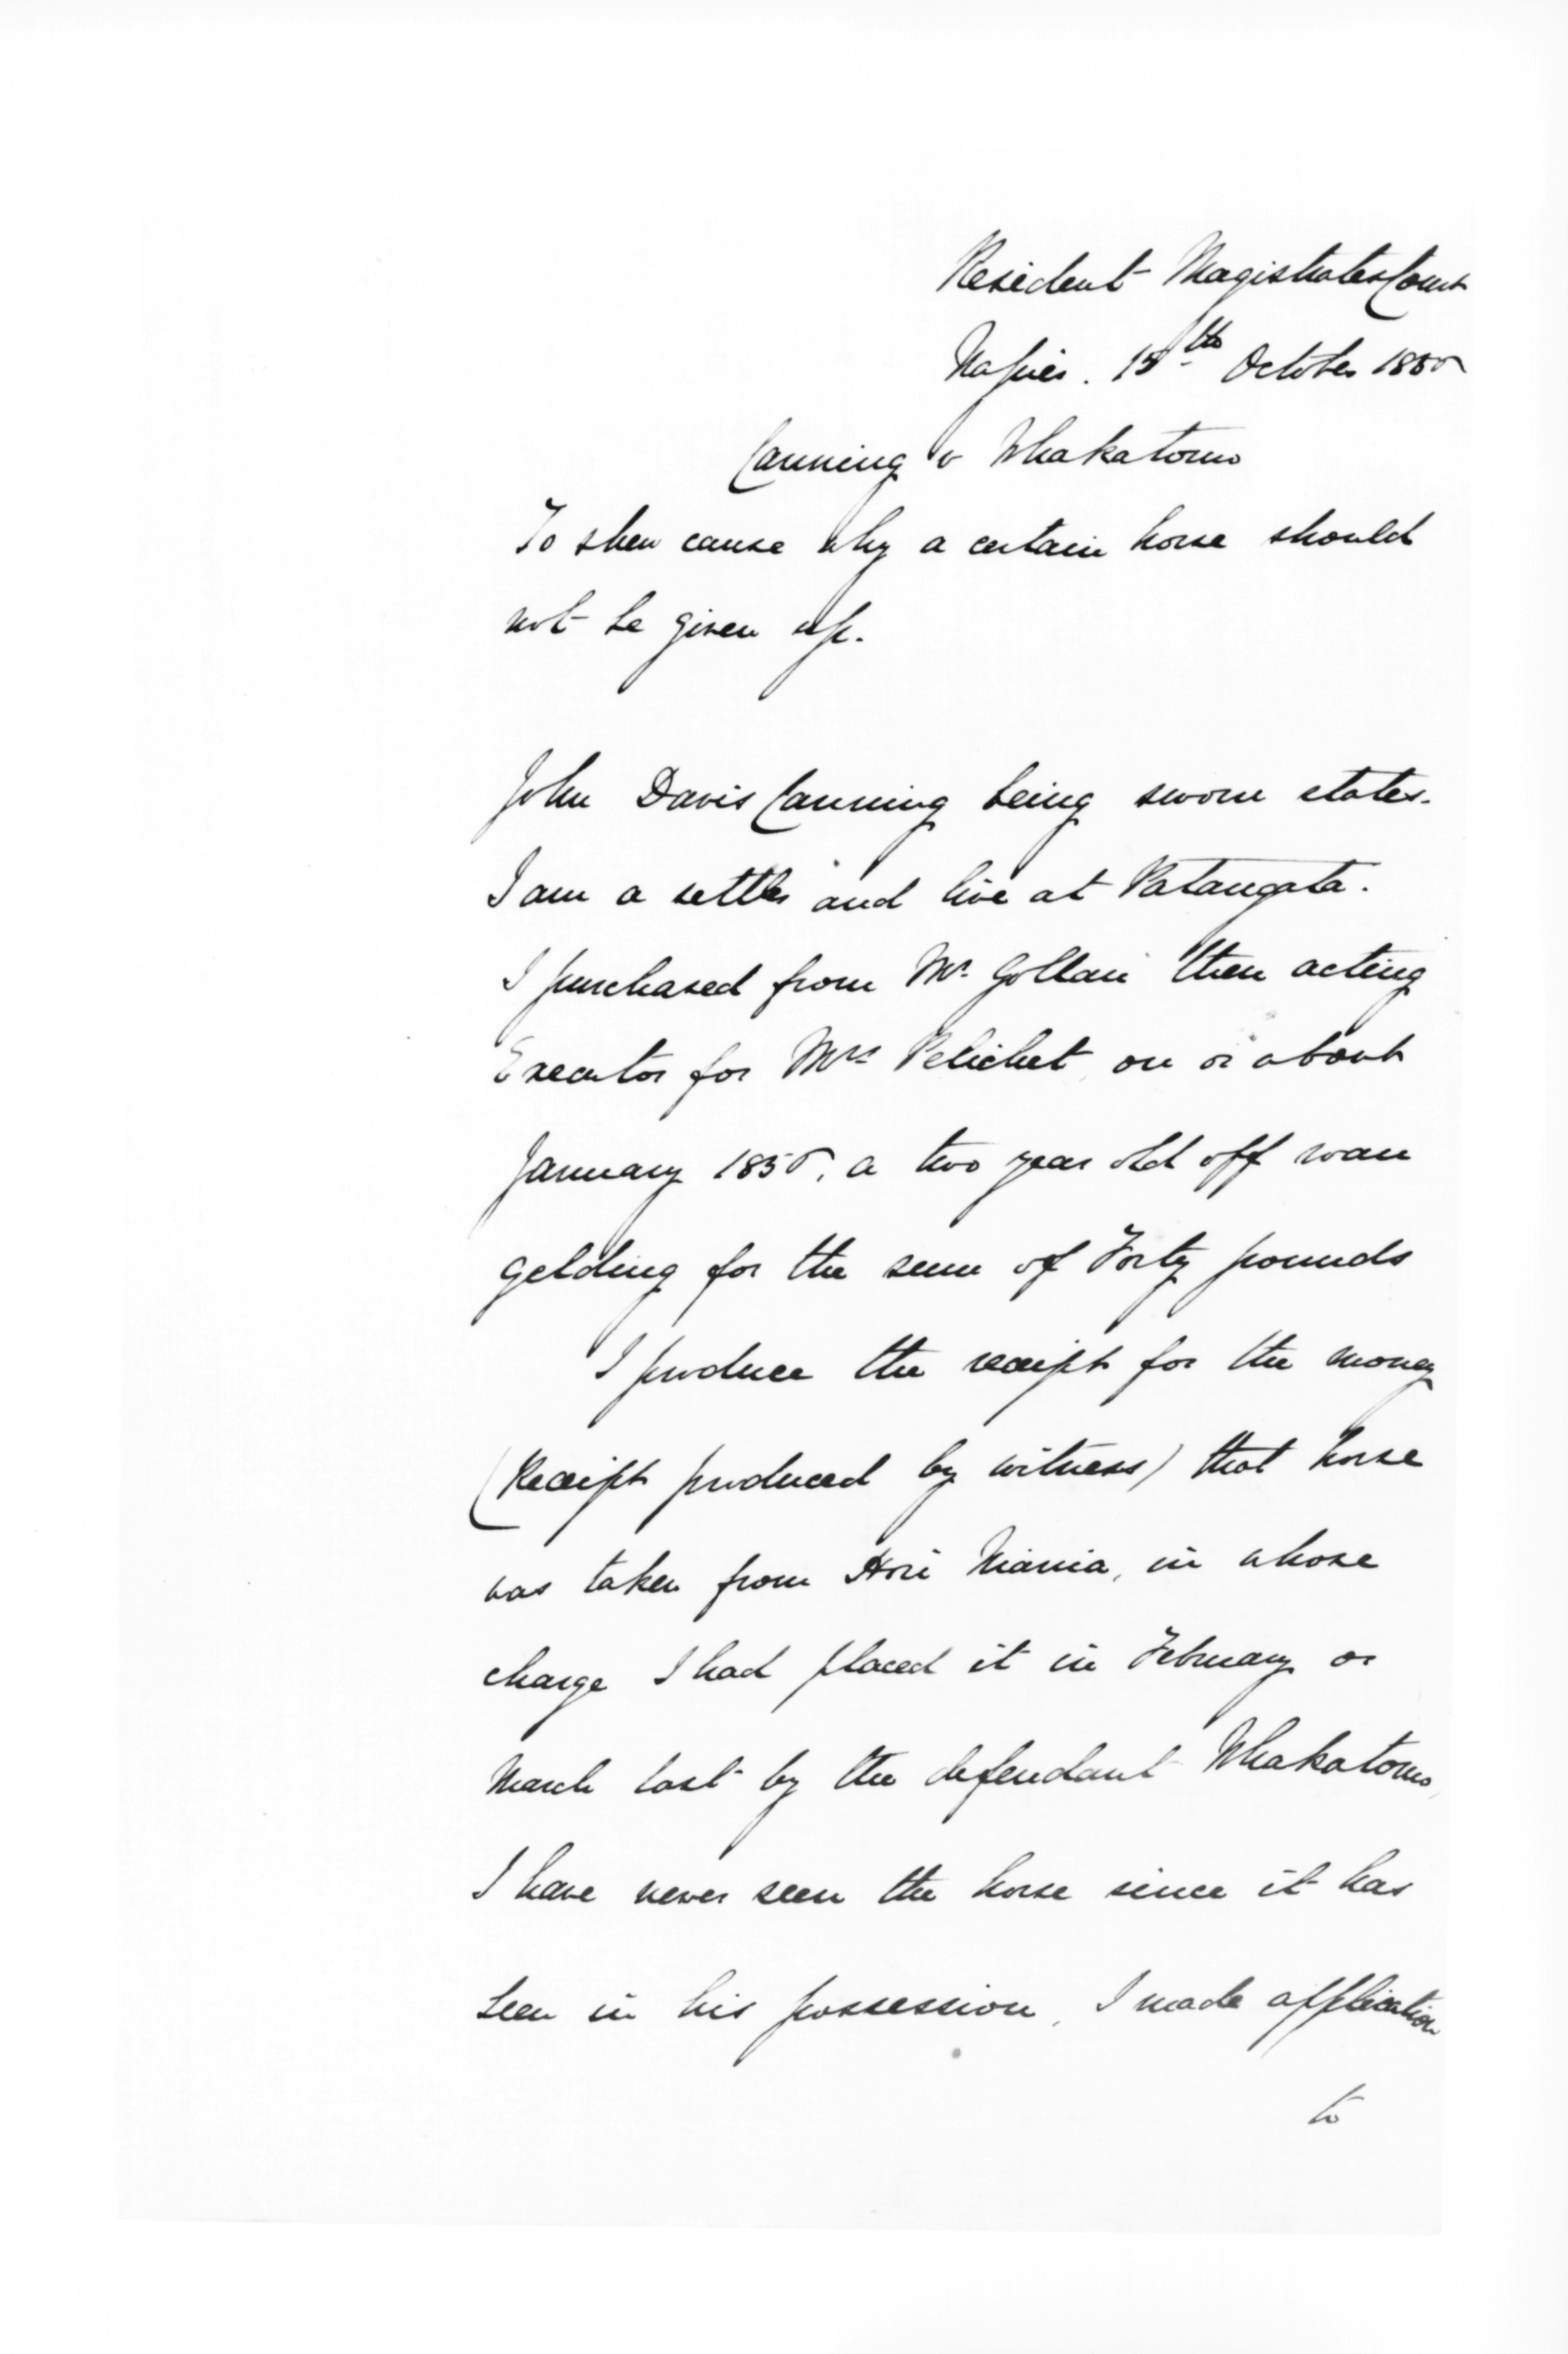 Resident Magistrates Court
Napier. 15th October 1855
Canning v Whakatomo
To shew cause why a certain horse should
not be given up.
John Davis Canning being sworn states.
I am a settler and live at Patangata.
I purchased from Mr. Gollan then acting
Executor for Mrs Pelichet on or about
January 1855, a two year old off roan
gelding for the sum of Forty pounds
I produce the receipt for the money
(Receipt produced by witness) that horse
was taken from Hori Niania, in whose
charge I had placed it in February or
March last by the defendant Whakatomo,
I have never seen the horse since it has
been in his possession, I made application
to